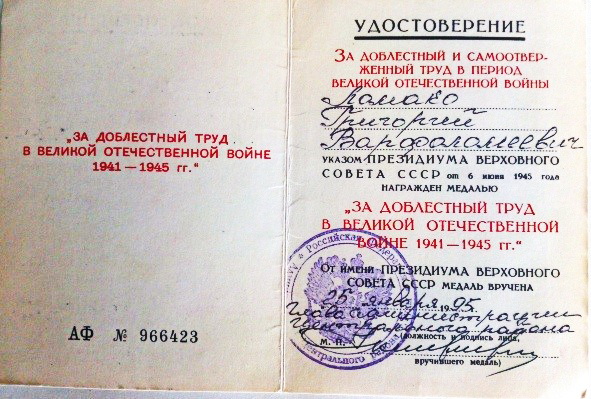 „ЗА ДОБЛЕСТНЫЙ ТРУД
В ВЕЛИКОЙ ОТЕЧЕСТВЕННОЙ ВОЙНЕ
1941—1945 гг.“
АФ № 966423
УДОСТОВЕРЕНИЕ
ЗА ДОБЛЕСТНЫЙ И САМООТВЕР-
ЖЕННЫЙ ТРУД В ПЕРИОД
ВЕЛИКОЙ ОТЕЧЕСТВЕННОЙ ВОЙНЫ
Ломако
Григорий
Варфоломеевич
УКАЗОМ ПРЕЗИДИУМА ВЕРХОВНОГО
СОВЕТА СССР от 6 июня 1945 года
НАГРАЖДЕН МЕДАЛЬЮ
„ЗА ДОБЛЕСТНЫЙ ТРУД
В ВЕЛИКОЙ ОТЕЧЕСТВЕННОЙ
ВОЙНЕ 1941—1945 гг.“
От имени ПРЕЗИДИУМА ВЕРХОВНОГО
СОВЕТА СССР МЕДАЛЬ ВРУЧЕНА
25 января 1995 г.
Глава администрации
Центрального района
М. П. (должность и подпись лица,
вручившего медаль)
Российская
Центрального района